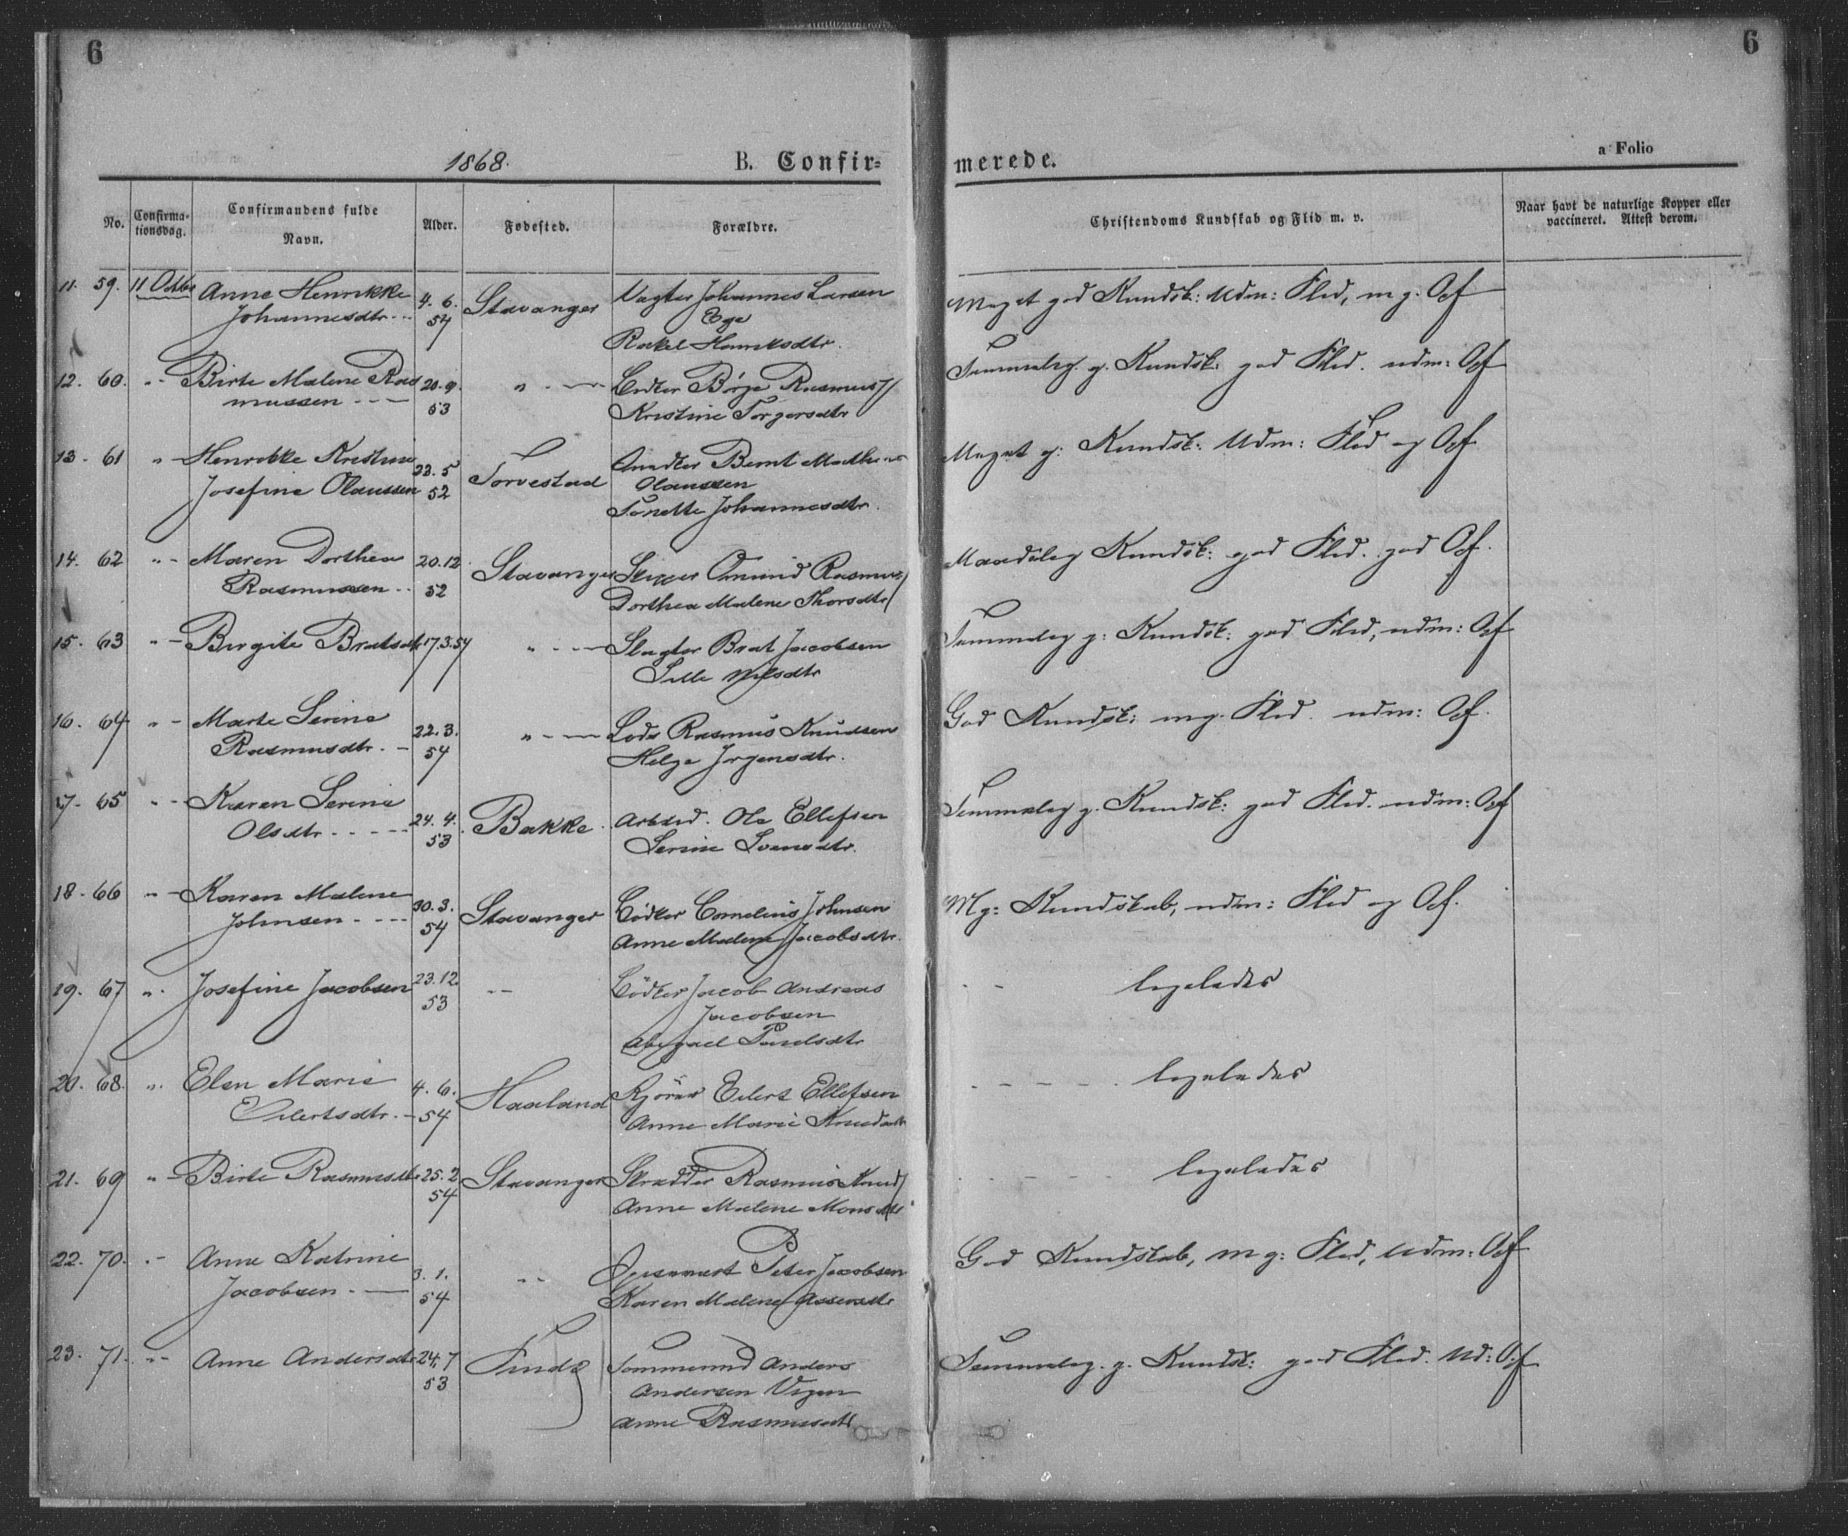 6
6
1868.
B. Confir-
merede.
a Folio
No.
Confirma-
tionsdag.
Confirmandens fulde
Navn.
Alder.
Fødested.
Forældre.
Christendoms Kundskab og Flid m. v.
Naar havt de naturlige Kopper eller
vaccineret. Attest derom.
11. 59. 11 Octbr Anne Henrikke 4. 6. Stavanger Vagter Johannes Larsen Meget god Kundsk: Udm: Flid, m g. Opf
Johannesdtr. 54 Ege
Rakel Henriksdtr.
12. 60. " - Birte Malene Ras 20. 9. " - Bødker Børge Rasmus// Temmelig g. Kundsk: god Flid. udm: Opf
mussen - - 53 Kristine Torgersdtr
13. 61 " - Henrikke Kristine 23. 5 Torvestad Bernt Mathias Meget g: Kundsk: Udm: Flid og Opf
Josefine Olaussen 52 Olaussen
Tonette Johannesdtr.
14. 62 " - Maren Dorthea 20. 12 Stavanger Omund Rasmus/ Maadelig Kundsk: god Flid. god Opf.
Rasmussen - 52 Dorthea Malene Thorsdtr/
15. 63 " - Birgite Bratsdtr 17. 3. 54 " - Slagter Brat Jacobsen Temmelig g: Kundsk: god Flid, udm: Opf
Sille Nilsdtr
16. 64 " - Marte Serine 22. 3. " - Lods Rasmus Knudsen God Kundsk: mg. Flid. udm: Opf.
Rasmusdtr. - 54 Helge Jrgensdtr.
17. 65 " - Karen Serine 24. 4. Bakke. Arbeid. Ole Ellefsen Temmelig g. Kundsk: god Flid. udm: Opf
Olsdtr - - - 53 Serine Svensdtr.
18. 66 " - Karen Malene 30. 3. Stavanger Bødker Cornelius Johnsen Mg: Kundskab, udm: Flid og Opf.
Johnsen - - - 54 Anne Malene Jacobsdtr.
19. 67 " - Josefine Jacobsen 23. 12 - - Bødker Jacob Andreas - - ligeledes
53 Jacobsen
Abigael Paulsdtr
20. 68. " . Elen Marie 4. 6. Haaland Eilert Ellefsen - - - - - ligeledes
Eilertsdtr. - 54 Anne Marie Knudsdtr
21. 69 " - Birte Rasmusdtr 25. 2 Stavanger Skrædder Rasmus Knud/ - - - - - ligeledes
54 Anne Malene Monsdtr
22. 70. " - Anne Katrine 3. 1. - - Peter Jacobsen God Kundskab, m g: Flid, Udm: Opf
Jacobsen. - 54 Karen Malene Assersdtr
23. 71. " - Anne Andersdtr 24. 7 Finds Tømmermd Anders Temmelig. g. Kundsk: god Flid. Ud: Opf
53 Andersen Vigen
Anne Rasmusdtr